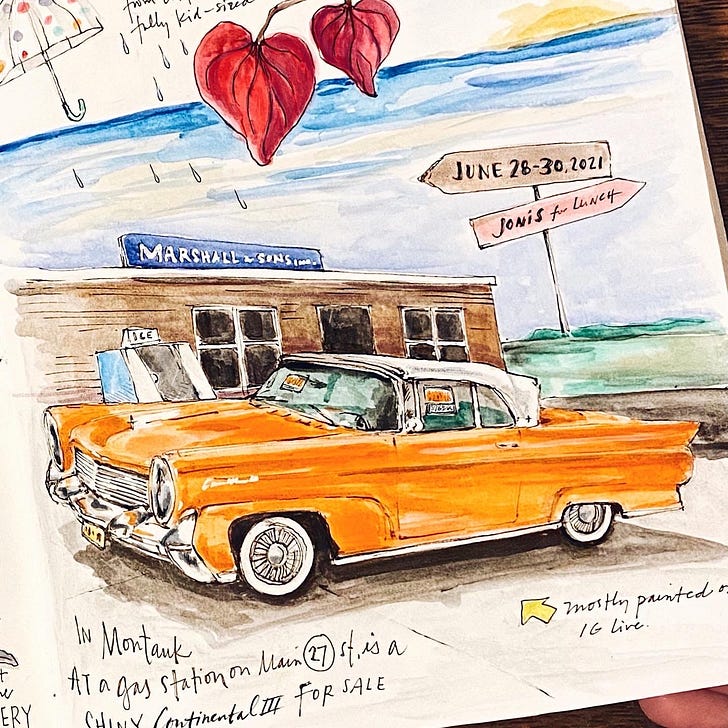 fully kid-sized
JUNE 28-30, 2021
JONIS for LUNCH
MARSHALL & SONS INC.
ICE
mostly painted
IG Live.
IN Montauk
AT a gas station on Main 27 st, is a
SHINY Continental III FOR SALE
ERY